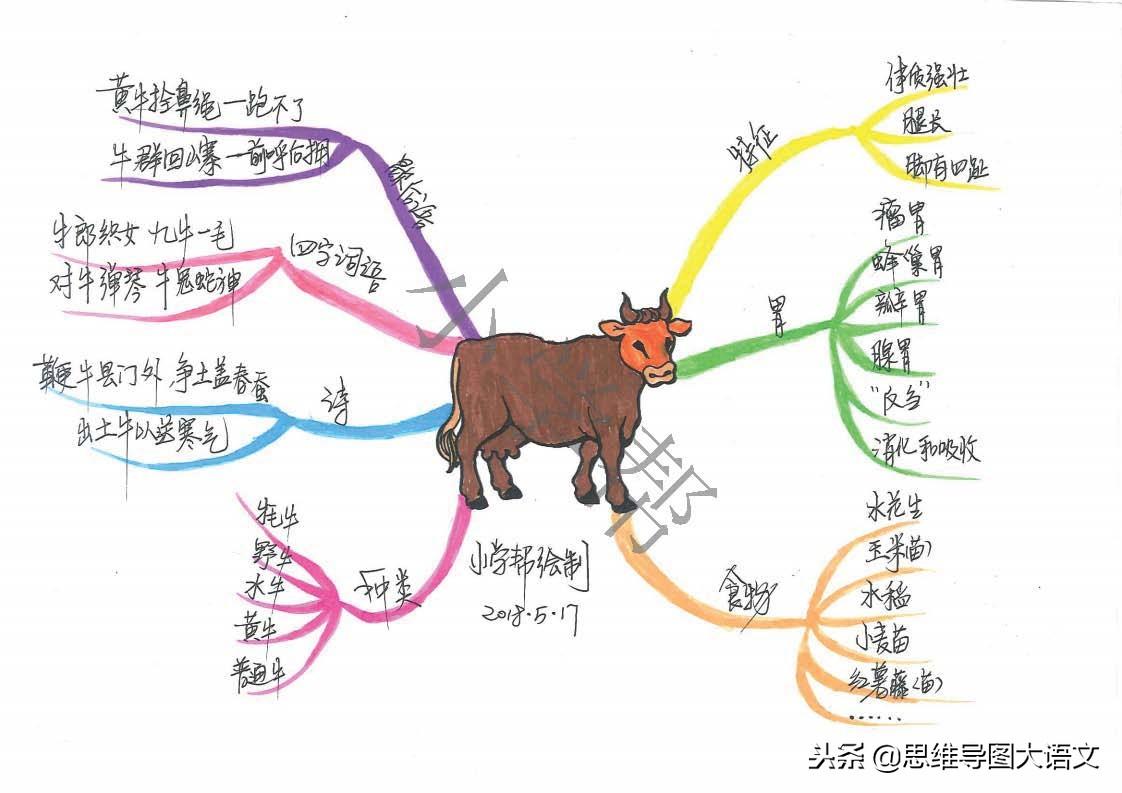 黄牛拴鼻绳—跑不了
牛群回山寨—前呼后拥
歇后语
牛郎织女 九牛一毛
对牛弹琴 牛鬼蛇神
四字词语
鞭牛县门外 争土盖春蚕
出土牛以送寒气
诗
牦牛
野牛
水牛
黄牛
普通牛
种类
特征
体质强壮
腿长
脚有四趾
胃
瘤胃
蜂巢胃
瓣胃
腺胃
“反刍”
消化和吸收
食物
水花生
玉米(苗)
水稻
小麦苗
红薯藤(苗)
……
小学帮绘制
2018.5.17
小学帮
头条@思维导图大语文